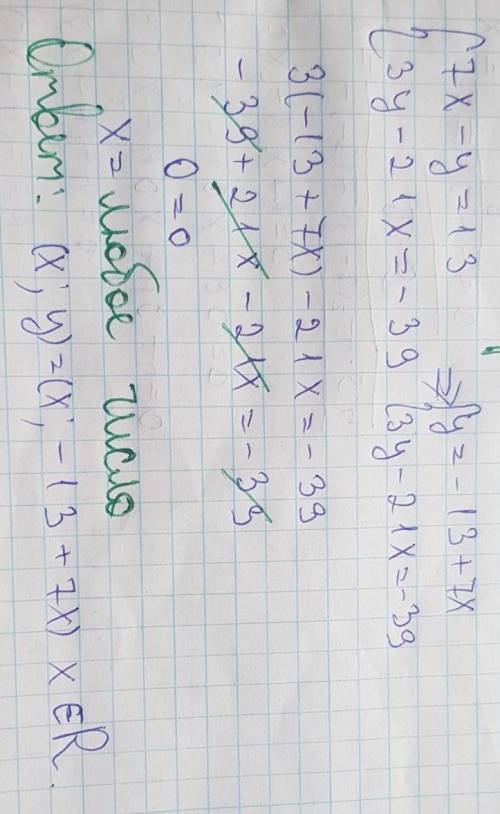 {7x - y = 13 => {y = -13 + 7x
{3y - 21x = -39 {3y - 21x = -39
3(-13 + 7x) - 21x = -39
-39 + 21x - 21x = -39
0 = 0
x = любое число
Ответ: (x; y) = (x; -13 + 7x) x ∈ R.